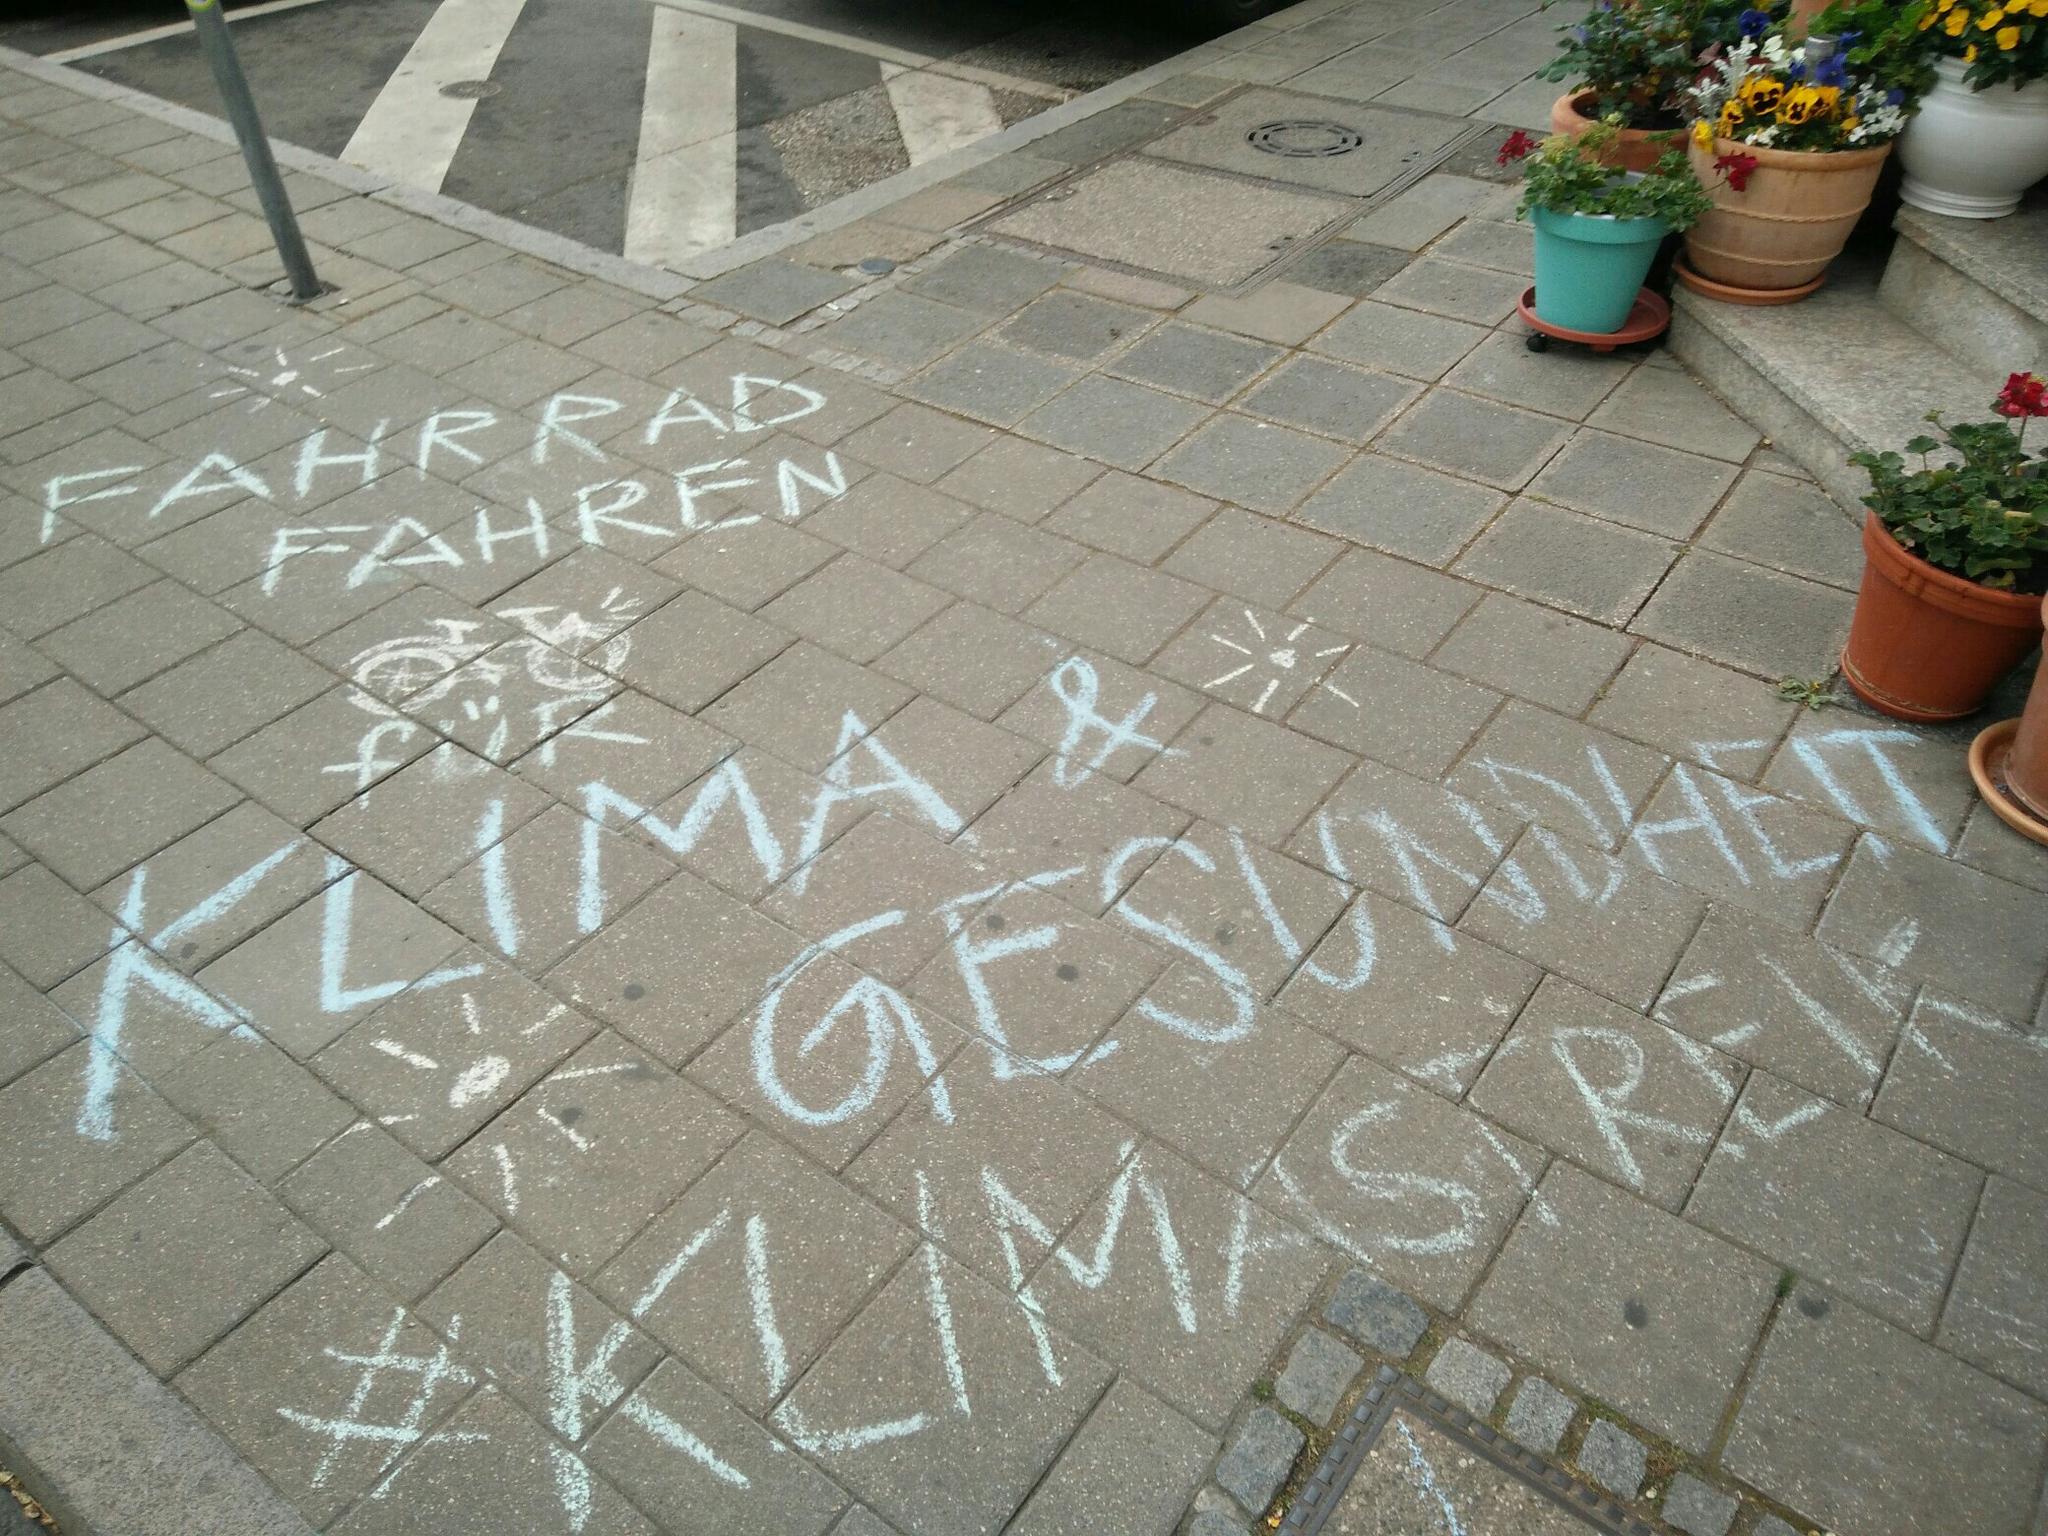 FAHRRAD
FAHREN
fÜR
KLIMA &
GESUNDHEIT
#KLIMASTREIK